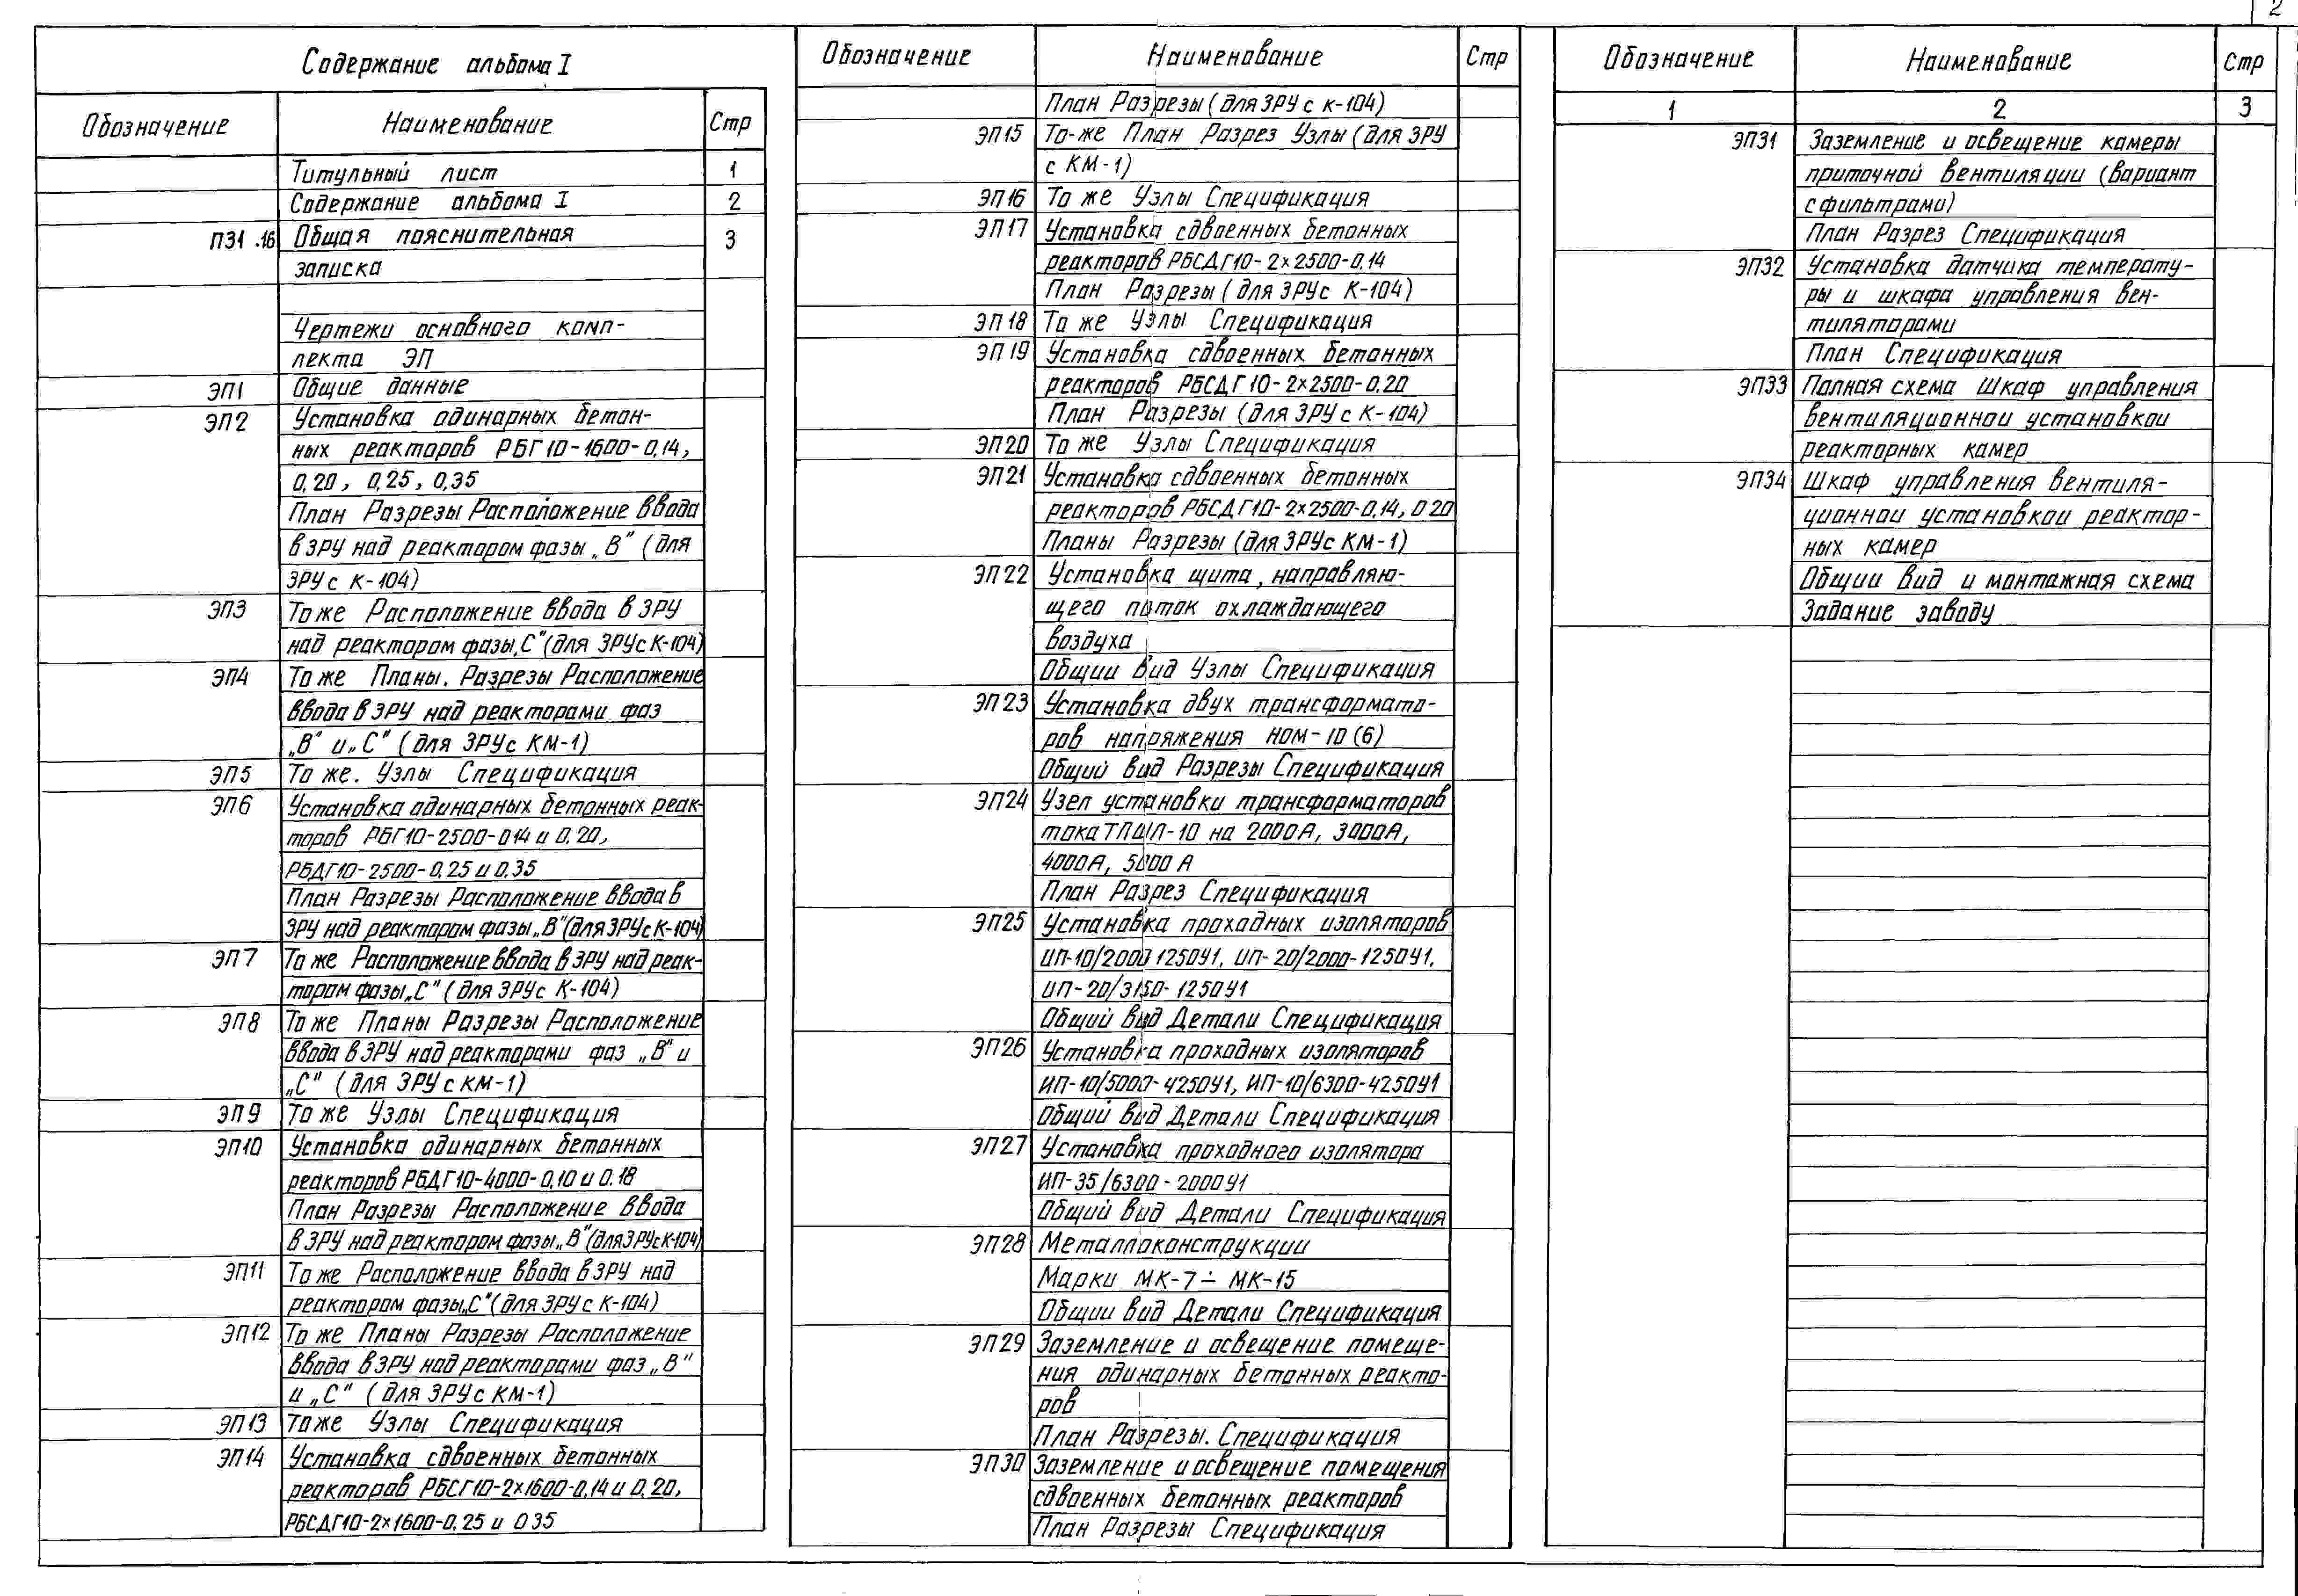 2
Содержание альбома I
Обозначение Наименование Стр
Титульный лист 1
Содержание альбома I 2
ПЗ1.16 Общая пояснительная 3
записка
Чертежи основного комп-
лекта ЭП
ЭП1 Общие данные
ЭП2 Установка одинарных бетон-
ных реакторов РБГ10-1600-0,14,
0,20, 0,25, 0,35
План Разрезы Расположение ввода
в ЗРУ над реактором фазы „В" (для
ЗРУ с К-104)
ЭП3 То же Расположение ввода в ЗРУ
над реактором фазы „С" (для ЗРУ с К-104)
ЭП4 То же Планы. Разрезы Расположение
ввода в ЗРУ над реакторами фаз
„В" и „С" (для ЗРУ с КМ-1)
ЭП5 То же. Узлы Спецификация
ЭП6 Установка одинарных бетонных реак-
торов РБГ10-2500-0 14 и 0,20,
РБДГ10-2500-0,25 и 0,35
План Разрезы Расположение ввода в
ЗРУ над реактором фазы „В" (для ЗРУ с К-104)
ЭП7 То же Расположение ввода в ЗРУ над реак-
тором фазы „С" (для ЗРУ с К-104)
ЭП8 То же Планы Разрезы Расположение
ввода в ЗРУ над реакторами фаз „В" и
„С" (для ЗРУ с КМ-1)
ЭП9 То же Узлы Спецификация
ЭП10 Установка одинарных бетонных
реакторов РБДГ10-4000-0,10 и 0.18
План Разрезы Расположение ввода
в ЗРУ над реактором фазы „В" (для ЗРУ с К-104)
ЭП11 То же Расположение ввода в ЗРУ над
реактором фазы „С" (для ЗРУ с К-104)
ЭП12 То же Планы Разрезы Расположение
ввода в ЗРУ над реакторами фаз „В"
и „С" (для ЗРУ с КМ-1)
ЭП13 То же Узлы Спецификация
ЭП14 Установка сдвоенных бетонных
реакторов РБСГ10-2×1600-0,14 и 0,20,
РБСДГ10-2×1600-0,25 и 0 35
Обозначение Наименование Стр
План Разрезы (для ЗРУ с К-104)
ЭП15 То-же План Разрез Узлы (для ЗРУ
с КМ-1)
ЭП16 То же Узлы Спецификация
ЭП17 Установка сдвоенных бетонных
реакторов РБСДГ10-2×2500-0,14
План Разрезы (для ЗРУ с К-104)
ЭП18 То же Узлы Спецификация
ЭП19 Установка сдвоенных бетонных
реакторов РБСДГ10-2×2500-0,20
План Разрезы (для ЗРУ с К-104)
ЭП20 То же Узлы Спецификация
ЭП21 Установка сдвоенных бетонных
реакторов РБСДГ10-2×2500-0,14, 0 20
Планы Разрезы (для ЗРУ с КМ-1)
ЭП22 Установка щита, направляю-
щего поток охлаждающего
воздуха
Общий вид Узлы Спецификация
ЭП23 Установка двух трансформато-
ров напряжения НОМ-10 (6)
Общий вид Разрезы Спецификация
ЭП24 Узел установки трансформаторов
тока ТПШЛ-10 на 2000А, 3000А,
4000А, 5000 А
План Разрез Спецификация
ЭП25 Установка проходных изоляторов
ИП-10/2000 1250У1, ИП-20/2000-1250У1,
ИП-20/3150-1250У1
Общий вид Детали Спецификация
ЭП26 Установка проходных изоляторов
ИП-10/5000-4250У1, ИП-10/6300-4250У1
Общий вид Детали Спецификация
ЭП27 Установка проходного изолятора
ИП-35/6300-2000У1
Общий вид Детали Спецификация
ЭП28 Металлоконструкции
Марки МК-7÷МК-15
Общий вид Детали Спецификация
ЭП29 Заземление и освещение помеще-
ния одинарных бетонных реакто-
ров
План Разрезы. Спецификация
ЭП30 Заземление и освещение помещения
сдвоенных бетонных реакторов
План Разрезы Спецификация
Обозначение Наименование Стр
1 2 3
ЭП31 Заземление и освещение камеры
приточной вентиляции (вариант
с фильтрами)
План Разрез Спецификация
ЭП32 Установка датчика температу-
ры и шкафа управления вен-
тиляторами
План Спецификация
ЭП33 Полная схема Шкаф управления
вентиляционной установкой
реакторных камер
ЭП34 Шкаф управления вентиля-
ционной установкой реактор-
ных камер
Общий вид и монтажная схема
Задание заводу